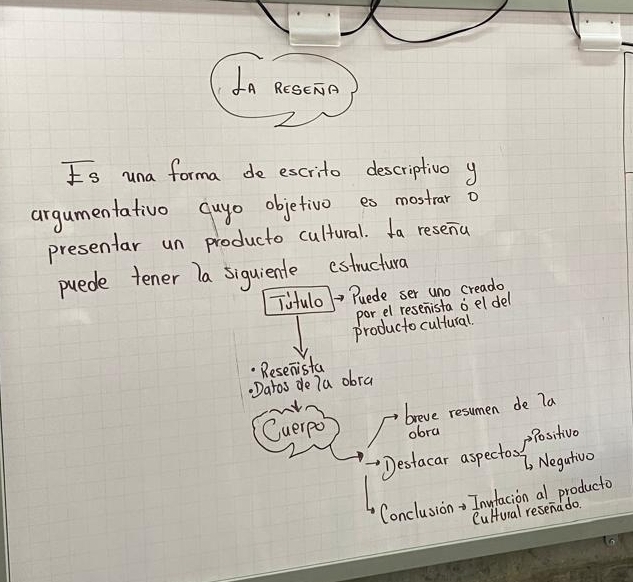 La RESEÑA
Es una forma de escrito descriptivo y
argumentativo cuyo objetivo es mostrar o
presentar un producto cultural. La reseña
puede tener la siguiente estructura
Título → Puede ser uno creado
por el reseñista ó el del
producto cultural.
• Reseñista
• Datos de la obra
Cuerpo
→ breve resumen de la
obra
→ Destacar aspectos → Positivo
↳ Negativo
↳ Conclusión → Invitación al producto
Cultural reseñado.